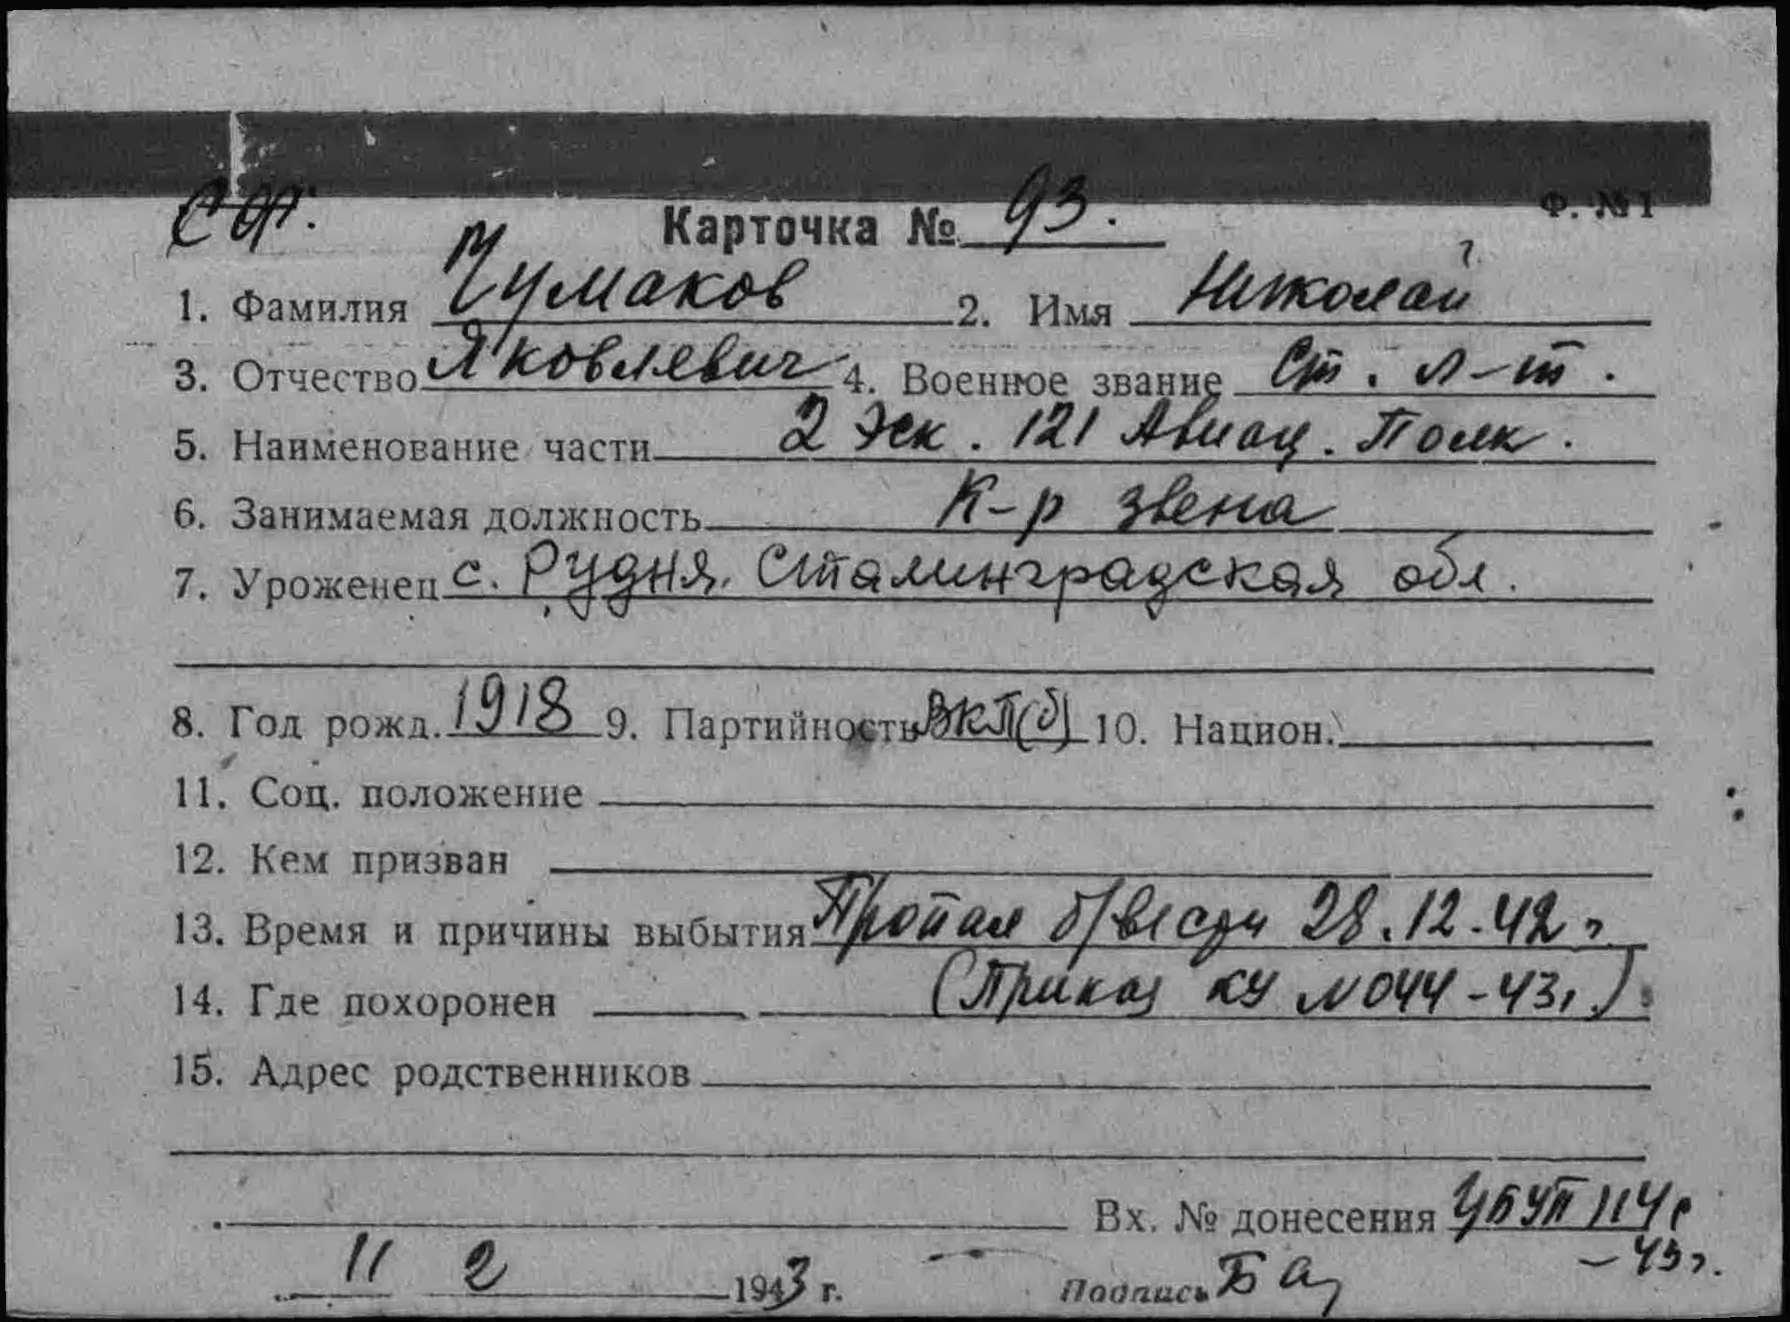 СФ.
Ф. №1
Карточка № 93.
1. Фамилия Чумаков 2. Имя Николай
3. Отчество Яковлевич 4. Военное звание Ст. л-т.
5. Наименование части 2 Эск. 121 Авиац. Полк.
6. Занимаемая должность К-р звена
7. Уроженец с. Рудня. Сталинградская обл.
8. Год рожд. 1918 9. Партийность ВКП(б) 10. Национ.
11. Соц. положение
12. Кем призван
13. Время и причины выбытия Пропал б/вести 28.12.42 г.
14. Где похоронен (Приказ КУ №044-43г.)
15. Адрес родственников
Вх. № донесения УБУП 114с
-43г.
11 2 1943 г. Подпись